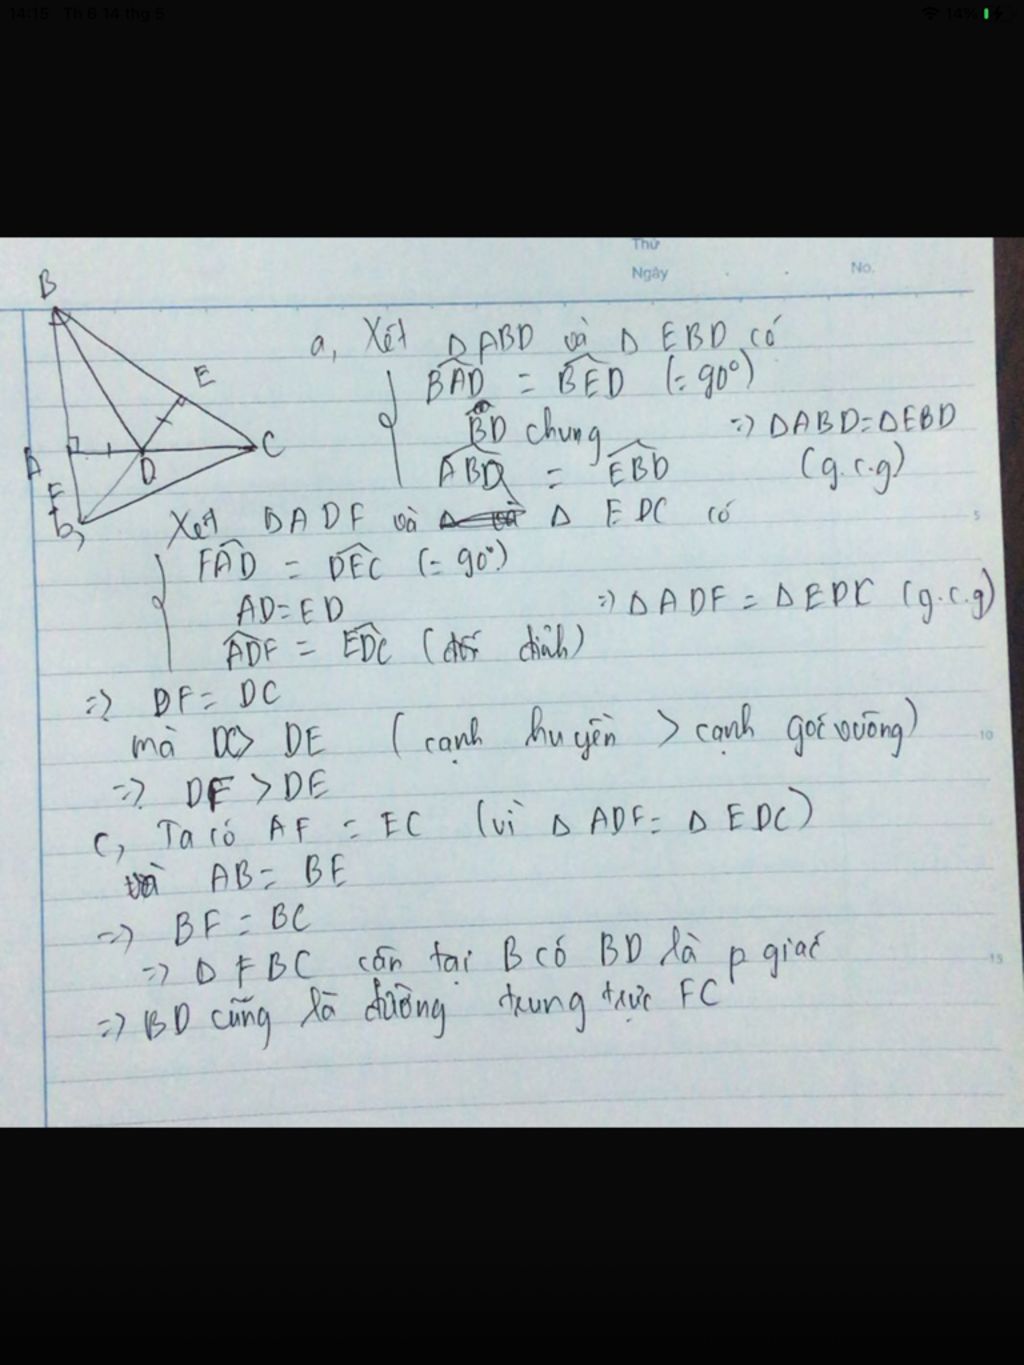 14:15 Th 6 14 thg 5
14%
Thứ
Ngày
No.
B
E
A
D
C
F
a, Xét ΔABD và Δ EBD có
BAD = BED (= 90°)
BD chung
ABD = EBD
=> ΔABD = ΔEBD
(g.c.g)
b,
Xét ΔADF và Δ EDC có
FAD = DEC (= 90°)
AD = ED
ADF = EDC (đối đỉnh)
=> ΔADF = ΔEDC (g.c.g)
=> DF = DC
mà DC > DE (cạnh huyền > cạnh góc vuông)
=> DF > DE
c, Ta có AF = EC (vì Δ ADF = Δ EDC)
và AB = BE
=> BF = BC
=> Δ FBC cân tại B có BD là p giác
=> BD cũng là đường trung trực FC
5
10
15